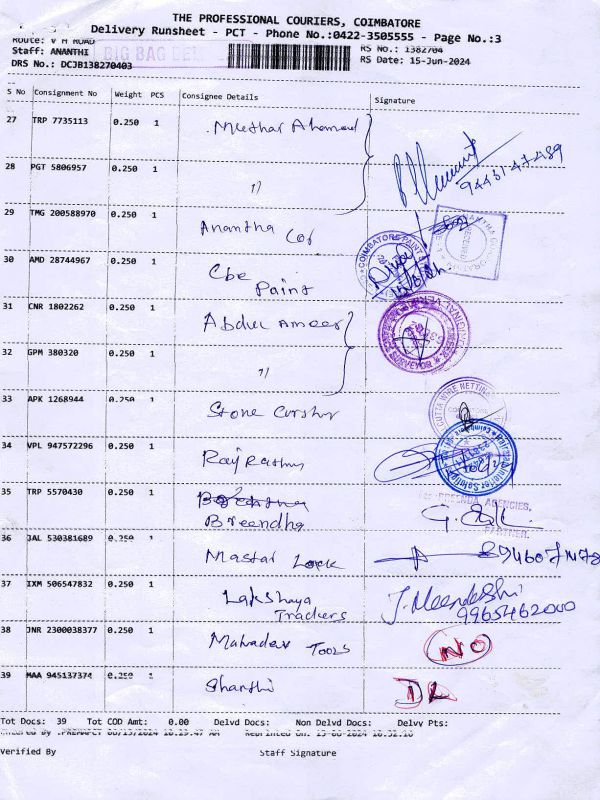 THE PROFESSIONAL COURIERS, COIMBATORE
Delivery Runsheet - PCT - Phone No.:0422-3505555 - Page No.:3
Route: V M ROAD
Staff: ANANTHI
DRS No.: DCJB138270403
BIG BAG
RS No.: 1382704
RS Date: 15-Jun-2024
S No Consignment No Weight PCS Consignee Details Signature
27 TRP 7735113 0.250 1 Muthar Ahamed
94431 47489
28 PGT 5806957 0.250 1 "
29 TMG 200588970 0.250 1 Anantha Cof
30 AMD 28744967 0.250 1 Cbe Paint
COIMBATORE PAINT
31 CNR 1802262 0.250 1 Abdul Ameer
SURVEYOR
32 GPM 380320 0.250 1 "
33 APK 1268944 0.250 1 Stone Curshur
WIRE NETTING
34 VPL 947572296 0.250 1 Raj Rathnu
35 TRP 5570430 0.250 1 Breendha
AGENCIES,
PARTNER.
36 JAL 530381689 0.250 1 Mastar Lock
37 IXM 506547832 0.250 1 Lakshaya Traders
J. Meenakshi
9965462000
38 JNR 2300038377 0.250 1 Mahadev Tools NO
39 MAA 945137374 0.250 1 Shanthi DL
Tot Docs: 39 Tot COD Amt: 0.00 Delvd Docs: Non Delvd Docs: Delvy Pts:
Verified By Staff Signature